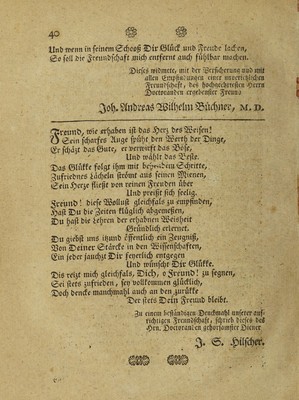 40
Und wenn in seinem Schooß Dir Glück und Freude lachen,
So soll die Freundschaft mich entfernt auch fühlbar machen.
Dieses widmete, mit der Versicherung nud mit
allen Empfindungen einer unverletzlichen
Freundschaft, des hochgelehrtesten Herrn
Doctoranden ergebenster Freund
Joh. Andreas Wilhelm Büchner, M. D.
Freund, wie erhaben ist das Herz des Weisen!
Sein scharfes Auge spühr den Werth der Dinge,
Er schäzt das Gute, er verwirft das Böse,
Und wählt das Beste.
Das Glükke folgt ihm mit beyden Schritte,
Zufriednes Lächeln strömt aus seinen Mienen,
Sein Herze fließt von reinen Freuden über
Und preißt sich seelig.
Freund! diese Wollust gleichfals zu empfinden,
Hast Du die Zeiten klüglich abgemessen,
Du hast die Lehren der erhabnen Weisheit
Gründlich erlernet.
Du giebst uns itzund öffentlich ein Zeugniß,
Von Deiner Stärcke in den Wissenschaften,
Ein jeder jauchzt Dir feyerlich entgegen
Und wünscht Dir Glükke.
Dis reizt mich gleichfals, Dich, o Freund! zu segnen,
Sei stets zufrieden, sey vollkommen glücklich,
Doch dencke manchmahl auch an den zurükke
Der stets Dein Freund bleibt.
Zu einem beständigen Denckmahl unserer auf-
richtigen Freundschaft, schrieb dieses des
Hrn. Doctoranden gehorsamster Diener
J. S. Hilscher.